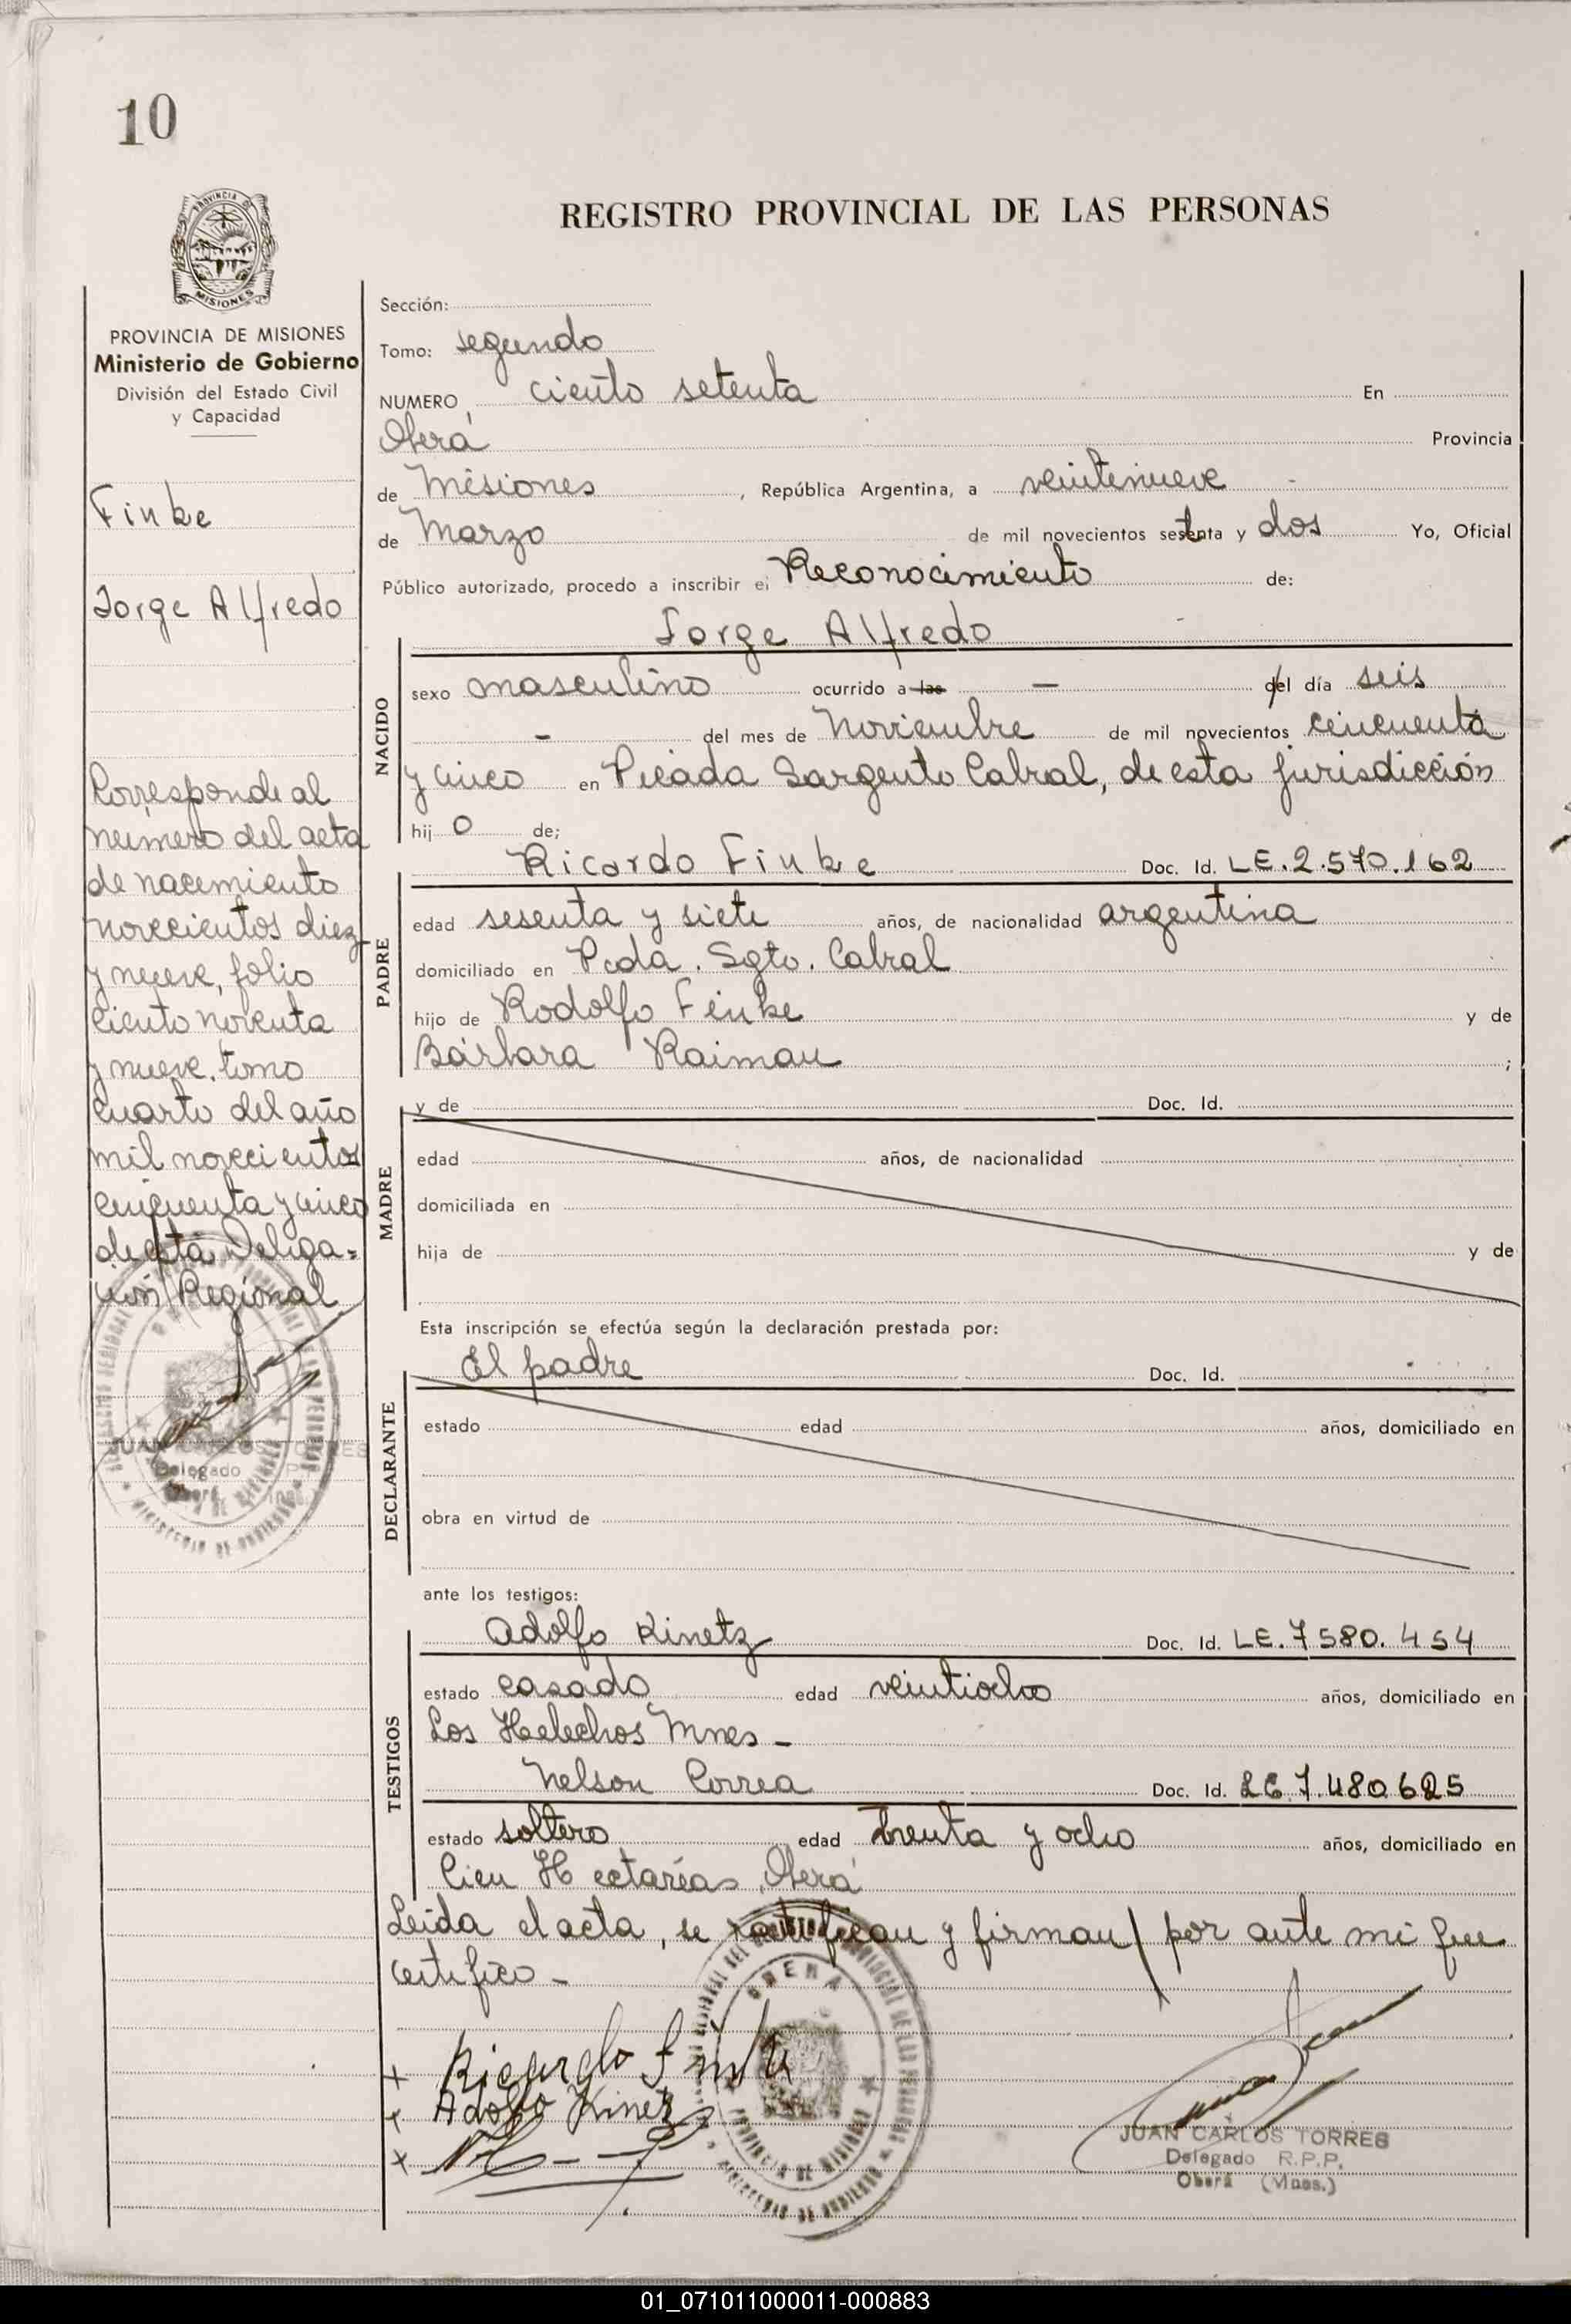 10
PROVINCIA DE MISIONES
Ministerio de Gobierno
División del Estado Civil
y Capacidad
Finke
Jorge Alfredo
Corresponde al
número del acta
de nacimiento
novecientos diez
y nueve, folio
ciento noventa
y nueve, tomo
cuarto del año
mil novecientos
cincuenta y cinco
de esta Delega=
ción Regional
REGISTRO PROVINCIAL DE LAS PERSONAS
Sección:
Tomo: segundo
NUMERO ciento setenta En
Oberá Provincia
de Misiones, República Argentina, a veintinueve -
de Marzo de mil novecientos setenta y dos Yo, Oficial
Público autorizado, procedo a inscribir el Reconocimiento de:
Jorge Alfredo
NACIDO
sexo masculino ocurrido a las — del día seis
- del mes de Noviembre de mil novecientos cincuenta
y cinco en Picada Sargento Cabral, de esta jurisdicción
hijo de;
PADRE
Ricardo Finke Doc. Id. LE.2.570.162
edad sesenta y siete años, de nacionalidad argentina
domiciliado en Pcda. Sgto. Cabral
hijo de Rodolfo Finke y de
Bárbara Raiman ;
MADRE
y de Doc. Id.
edad años, de nacionalidad
domiciliada en
hija de y de
Esta inscripción se efectúa según la declaración prestada por:
DECLARANTE
El padre Doc. Id.
estado edad años, domiciliado en
obra en virtud de
ante los testigos:
TESTIGOS
Adolfo Kinetz Doc. Id. LE.7580.454
estado casado edad veintiocho años, domiciliado en
Los Helechos Mnes -
Nelson Correa Doc. Id. LE.7.480.625
estado soltero edad treinta y ocho años, domiciliado en
Cien Hectaréas, Oberá
Leída el acta, se ratifican y firman / por ante mi que
certifico -
Ricardo Finke
Adolfo Kinetz
JUAN CARLOS TORRES
Delegado R.P.P.
Oberá (Mnes.)
01_071011000011-000883